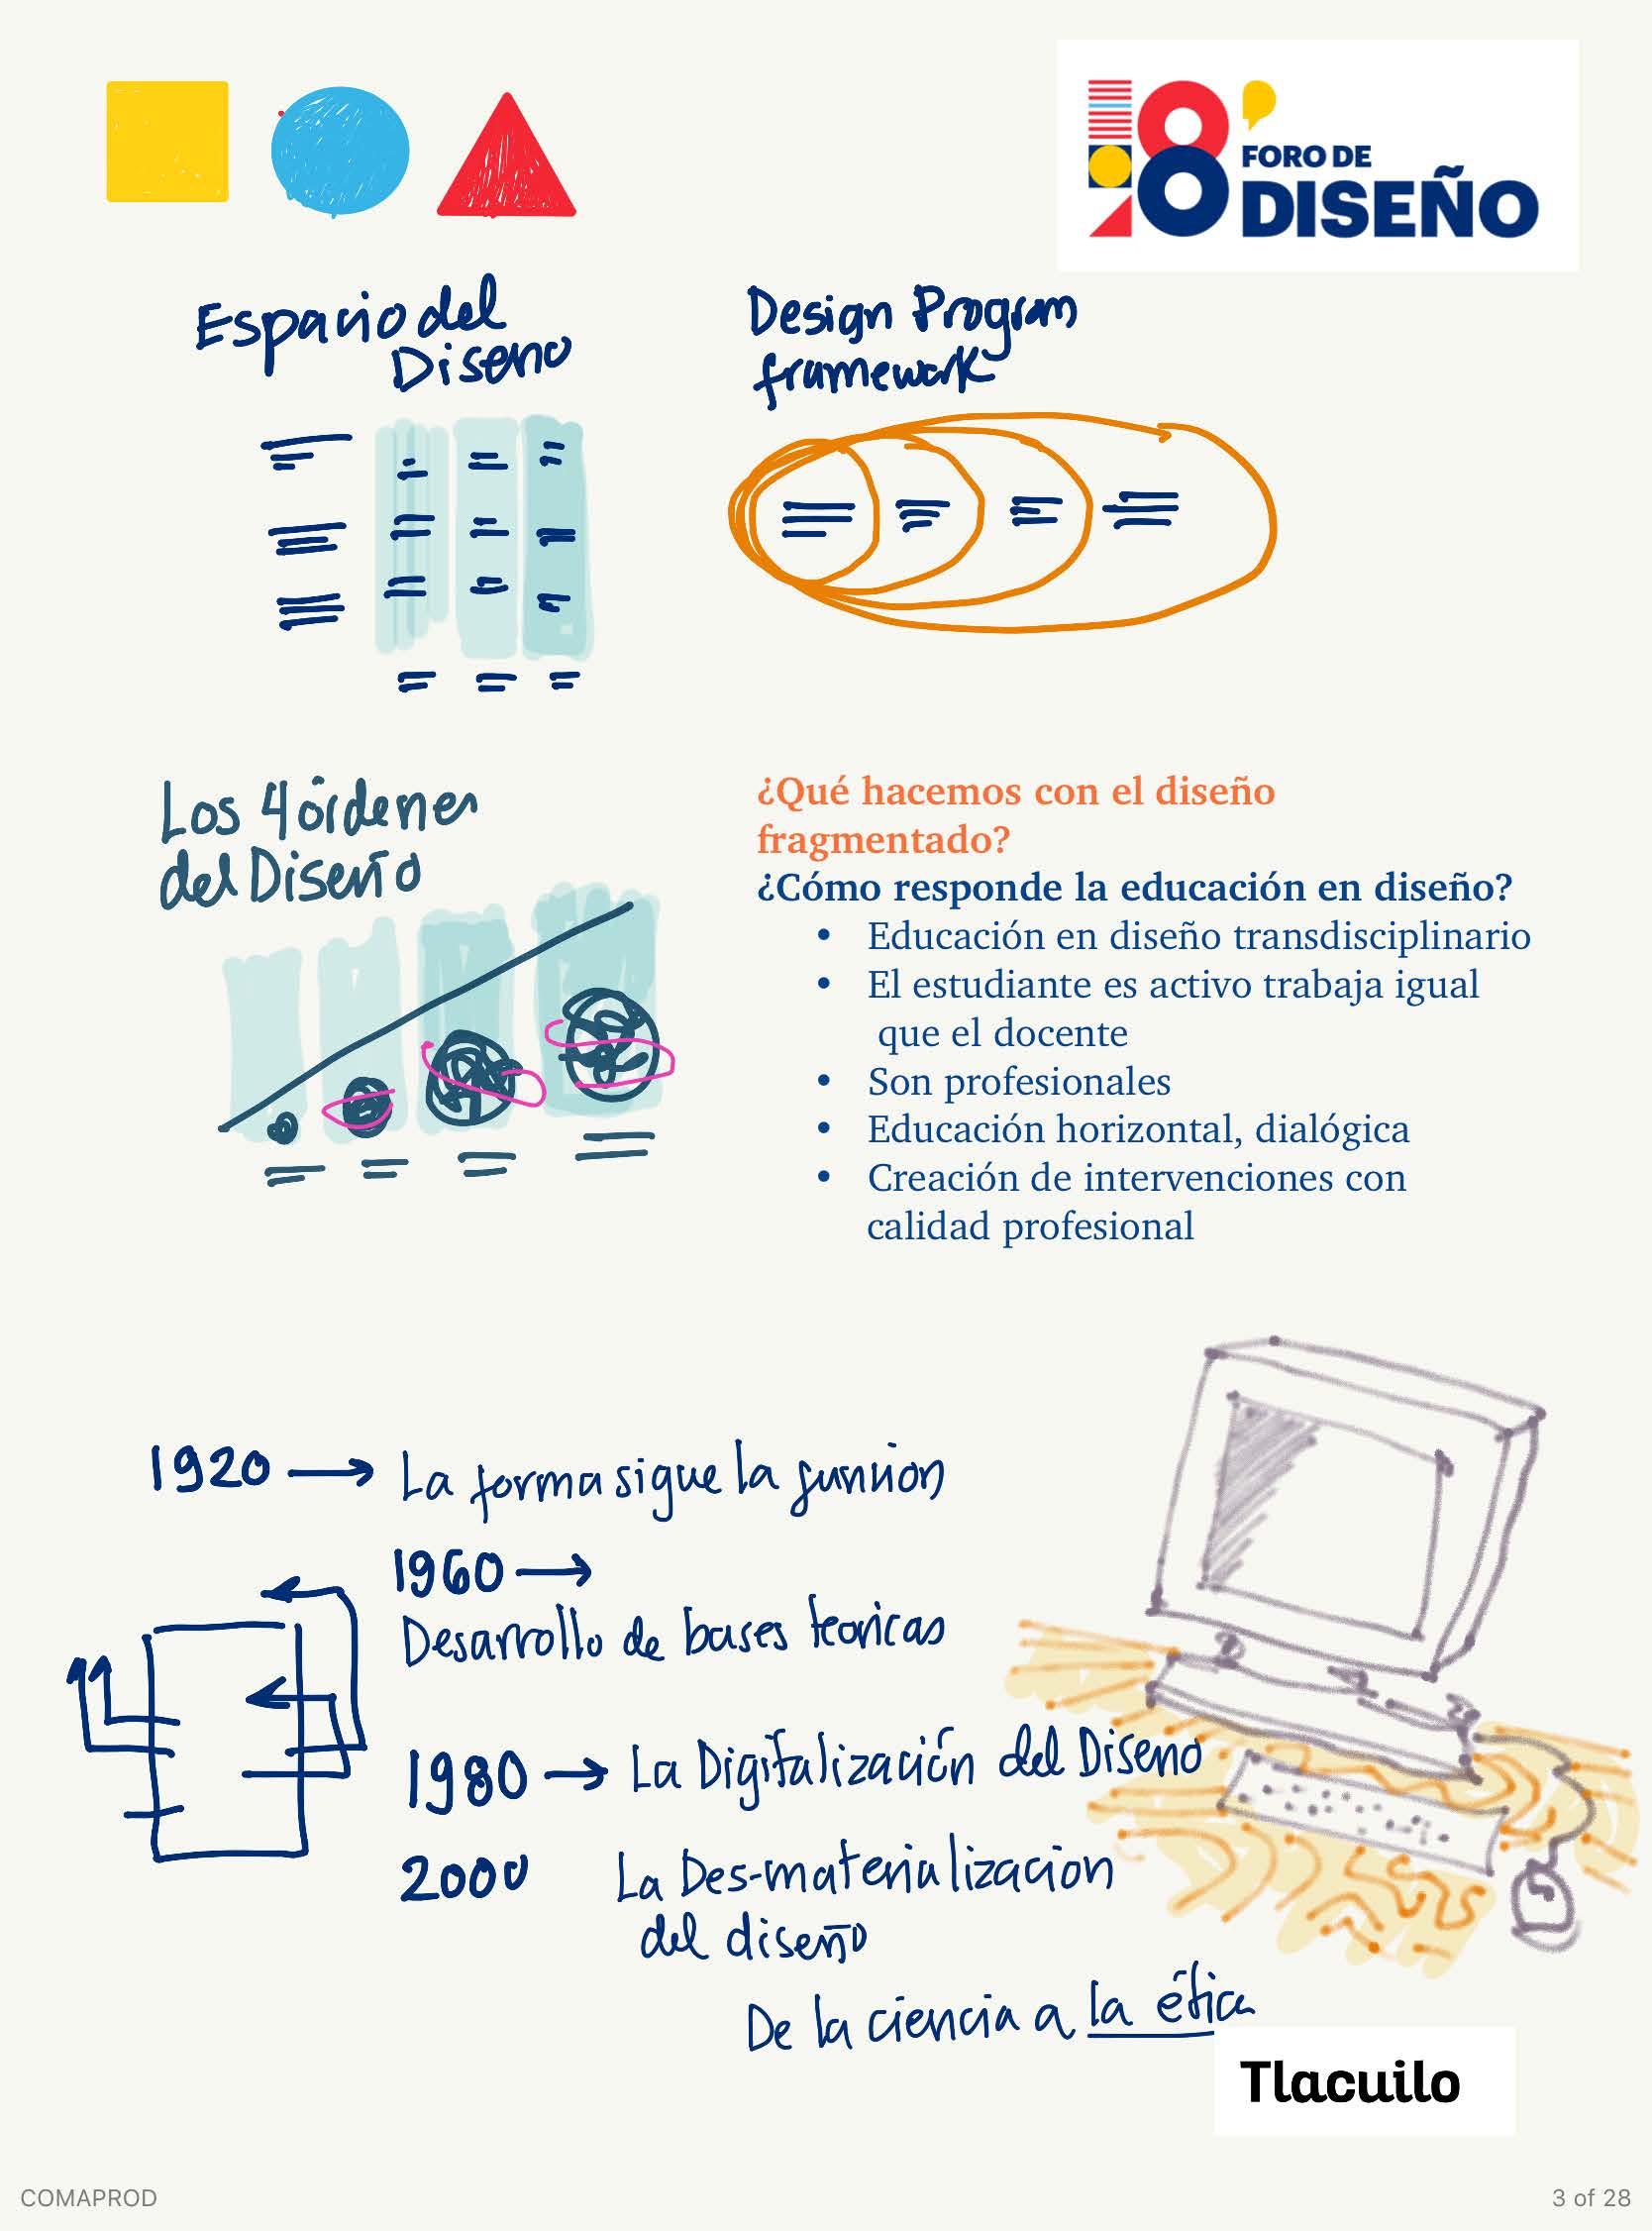 8º
FORO DE
DISEÑO
Espacio del
Diseño
Design Program
framework
Los 4 órdenes
del Diseño
¿Qué hacemos con el diseño
fragmentado?
¿Cómo responde la educación en diseño?
• Educación en diseño transdisciplinario
• El estudiante es activo trabaja igual
que el docente
• Son profesionales
• Educación horizontal, dialógica
• Creación de intervenciones con
calidad profesional
1920 → La forma sigue la función
1960 →
Desarrollo de bases teoricas
1980 → La Digitalización del Diseño
2000 La Des-materializacion
del diseño
De la ciencia a la ética
Tlacuilo
COMAPROD
3 of 28